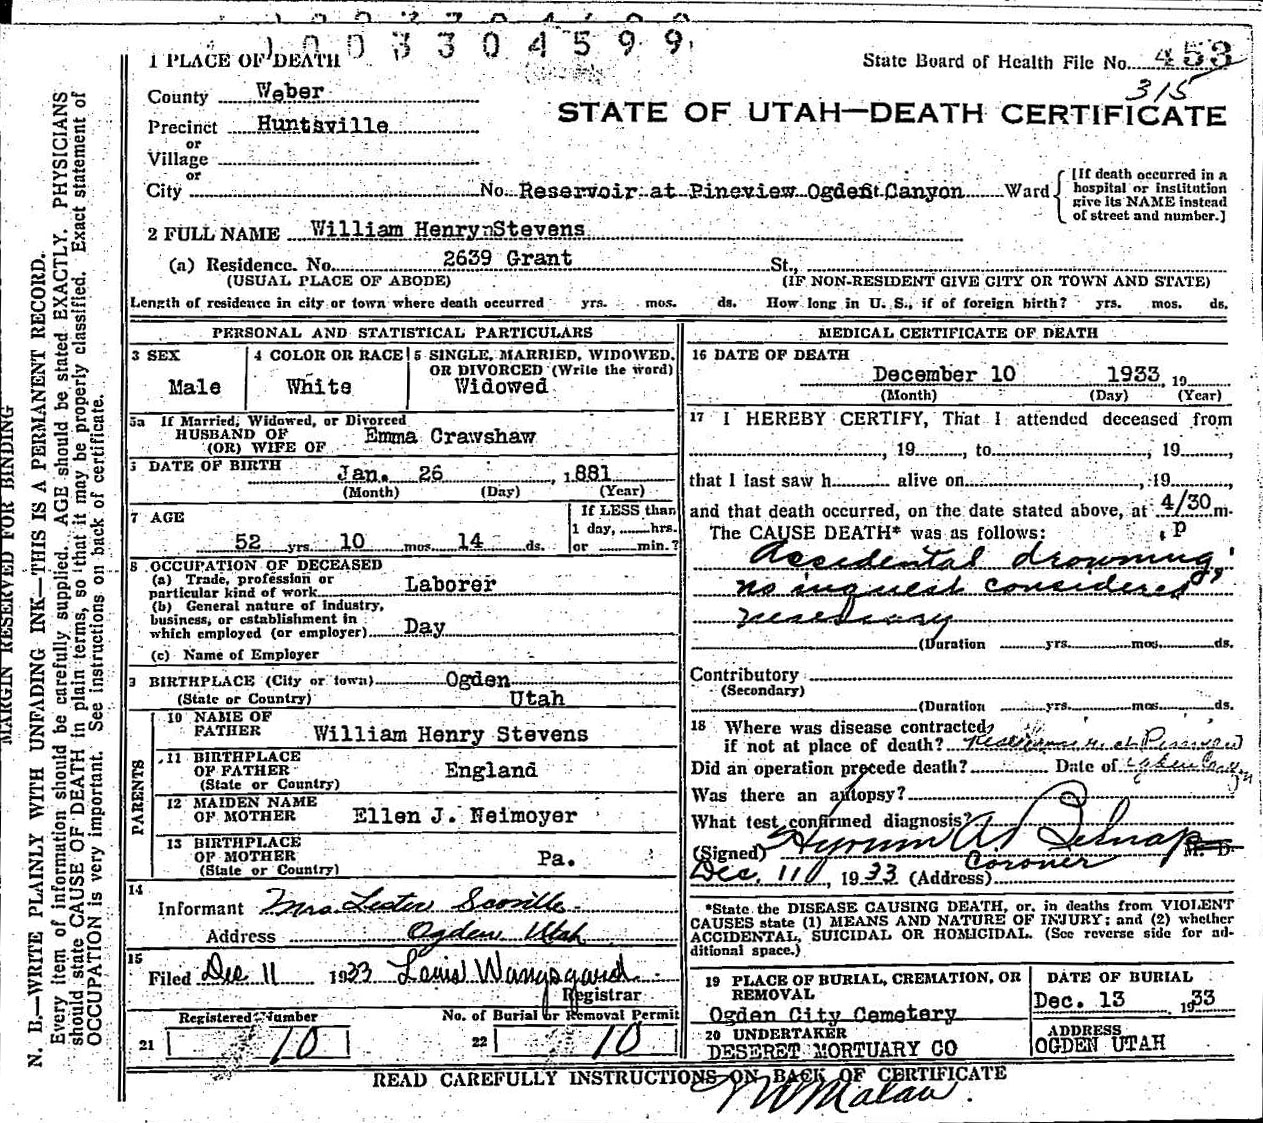 1003304599
1 PLACE OF DEATH
State Board of Health File No. 453
315
County Weber
STATE OF UTAH—DEATH CERTIFICATE
Precinct Huntsville
or
Village
or
City No. Reservoir at Pineview Ogden Canyon Ward
[If death occurred in a
hospital or institution
give its NAME instead
of street and number.]
2 FULL NAME William Henry Stevens
(a) Residence. No. 2639 Grant St.,
(USUAL PLACE OF ABODE) (IF NON-RESIDENT GIVE CITY OR TOWN AND STATE)
Length of residence in city or town where death occurred yrs. mos. ds. How long in U. S., if of foreign birth? yrs. mos. ds.
PERSONAL AND STATISTICAL PARTICULARS
3 SEX
Male
4 COLOR OR RACE
White
5 SINGLE, MARRIED, WIDOWED,
OR DIVORCED (Write the word)
Widowed
5a If Married, Widowed, or Divorced
HUSBAND OF
(OR) WIFE OF Emma Crawshaw
DATE OF BIRTH
Jan. 26, 1881
(Month) (Day) (Year)
7 AGE
52 yrs. 10 mos. 14 ds.
If LESS than
1 day, hrs.
or min.?
8 OCCUPATION OF DECEASED
(a) Trade, profession or
particular kind of work Laborer
(b) General nature of industry,
business, or establishment in
which employed (or employer) Day
(c) Name of Employer
9 BIRTHPLACE (City or town) Ogden
(State or Country) Utah
PARENTS
10 NAME OF
FATHER William Henry Stevens
11 BIRTHPLACE
OF FATHER England
(State or Country)
12 MAIDEN NAME
OF MOTHER Ellen J. Neimoyer
13 BIRTHPLACE
OF MOTHER Pa.
(State or Country)
14
Informant Mrs. Lester Scoville
Address Ogden Utah
15
Filed Dec 11 1933 Louis Wangsgard
Registrar
Registered Number
21 10
No. of Burial or Removal Permit
22 10
MEDICAL CERTIFICATE OF DEATH
16 DATE OF DEATH
December 10 1933, 19
(Month) (Day) (Year)
17 I HEREBY CERTIFY, That I attended deceased from
, 19 , to , 19 ,
that I last saw h alive on , 19 ,
and that death occurred, on the date stated above, at 4/30 m.
The CAUSE DEATH* was as follows: P
Accidental drowning,
no inquest considered
necessary
(Duration yrs. mos. ds.
Contributory
(Secondary)
(Duration yrs. mos. ds.
18 Where was disease contracted,
if not at place of death? Reservoir at Pineview
Did an operation precede death? Date of Ogden Canyon
Was there an autopsy?
What test confirmed diagnosis?
(Signed) Hyrum A. Belnap M. D.
Dec. 11, 1933 (Address) Coroner
*State the DISEASE CAUSING DEATH, or, in deaths from VIOLENT
CAUSES state (1) MEANS AND NATURE OF INJURY; and (2) whether
ACCIDENTAL, SUICIDAL OR HOMICIDAL. (See reverse side for ad-
ditional space.)
19 PLACE OF BURIAL, CREMATION, OR
REMOVAL
Ogden City Cemetery
DATE OF BURIAL
Dec. 13 1933
20 UNDERTAKER
DESERET MORTUARY CO
ADDRESS
OGDEN UTAH
READ CAREFULLY INSTRUCTIONS ON BACK OF CERTIFICATE
MARGIN RESERVED FOR BINDING
N. B.—WRITE PLAINLY WITH UNFADING INK—THIS IS A PERMANENT RECORD.
Every item of information should be carefully supplied. AGE should be stated EXACTLY. PHYSICIANS
should state CAUSE OF DEATH in plain terms, so that it may be properly classified. Exact statement of
OCCUPATION is very important. See instructions on back of certificate.